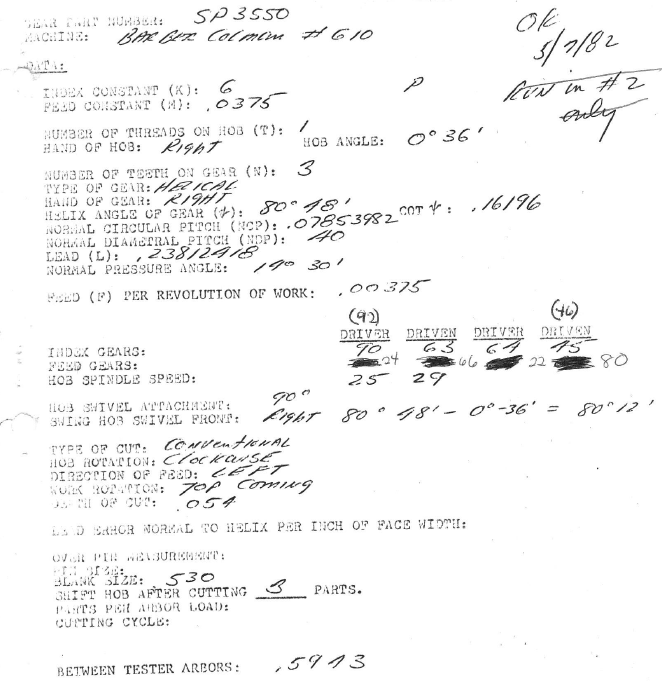 GEAR PART NUMBER: SP3550
MACHINE: BARBER Colman # 610
OK
3/7/82
DATA:
INDEX CONSTANT (K): 6
P
RUN in #2
only
FEED CONSTANT (M): .0375
NUMBER OF THREADS ON HOB (T): 1
HAND OF HOB: Right HOB ANGLE: 0° 36'
NUMBER OF TEETH ON GEAR (N): 3
TYPE OF GEAR: HELICAL
HAND OF GEAR: RIGHT
HELIX ANGLE OF GEAR (Ψ): 80° 48' COT Ψ: .16196
NORMAL CIRCULAR PITCH (NCP): .07853982
NORMAL DIAMETRAL PITCH (NDP): 40
LEAD (L): .23812418
NORMAL PRESSURE ANGLE: 14° 30'
FEED (F) PER REVOLUTION OF WORK: .00375
(92) (46)
DRIVER DRIVEN DRIVER DRIVEN
INDEX GEARS: 90 63 64 45
FEED GEARS: 24 66 22 80
HOB SPINDLE SPEED: 25 29
HOB SWIVEL ATTACHMENT: 90°
SWING HOB SWIVEL FRONT: Right 80° 48' - 0°-36' = 80° 12'
TYPE OF CUT: Conventional
HOB ROTATION: Clockwise
DIRECTION OF FEED: LEFT
WORK ROTATION: Top Coming
DEPTH OF CUT: .054
LEAD ERROR NORMAL TO HELIX PER INCH OF FACE WIDTH:
OVER PIN MEASUREMENT:
PIN SIZE:
BLANK SIZE: 530
SHIFT HOB AFTER CUTTING 3 PARTS.
PARTS PER ARBOR LOAD:
CUTTING CYCLE:
BETWEEN TESTER ARBORS: .5943